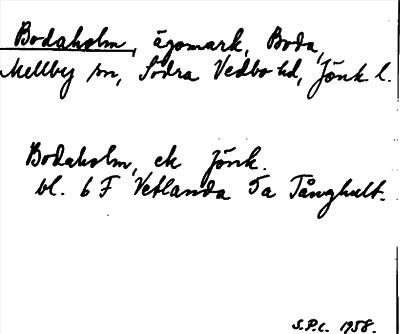 Bodaholm, ägomark, Boda,
Mellby sn, Södra Vedbo hd, Jönk. l.
Bodaholm, ek Jönk.
bl. 6 F Vetlanda 5a Tånghult.
S.P.c. 1958.